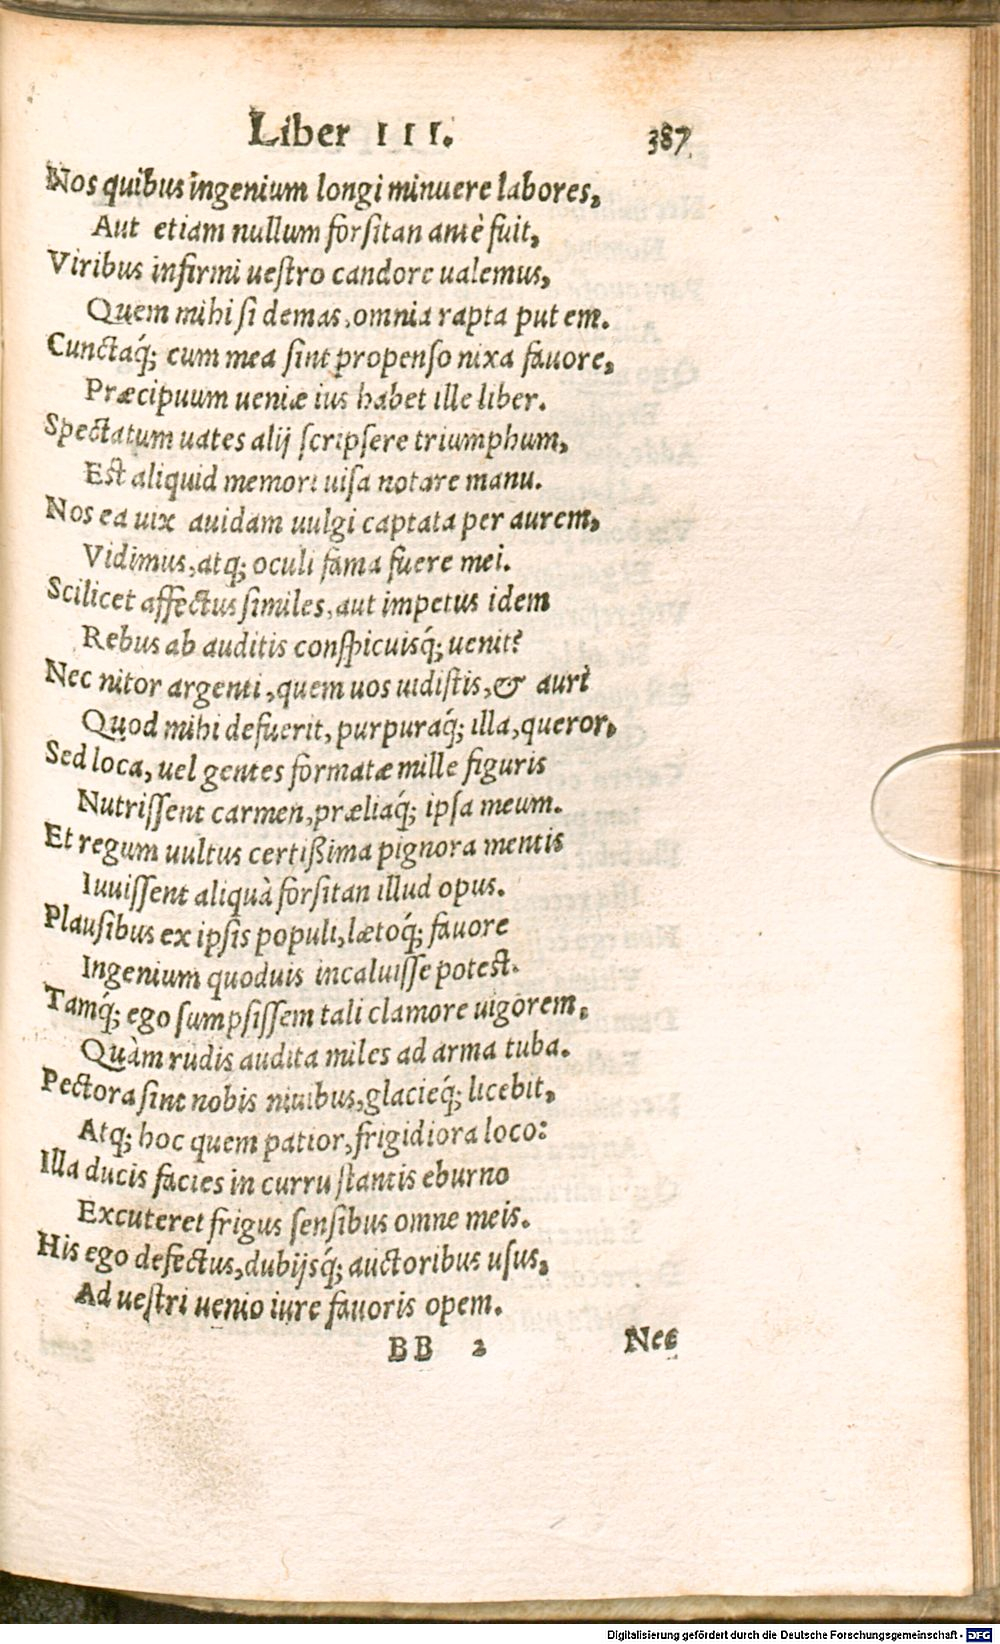 Liber III.
387
Nos quibus ingenium longi minuere labores,
Aut etiam nullum forſitan antè fuit,
Viribus infirmi ueſtro candore ualemus,
Quem mihi ſi demas, omnia rapta putem.
Cunctaq́; cum mea ſint propenſo nixa fauore,
Præcipuum ueniæ ius habet ille liber.
Spectatum uates alij ſcripſere triumphum,
Eſt aliquid memori uiſa notare manu.
Nos ea uix auidam uulgi captata per aurem,
Vidimus, atq; oculi fama fuere mei.
Scilicet affectus ſimiles, aut impetus idem
Rebus ab auditis conſpicuisq́; uenit?
Nec nitor argenti, quem uos uidiſtis, & auri
Quod mihi defuerit, purpuraq́; illa, queror,
Sed loca, uel gentes formatæ mille figuris
Nutriſſent carmen, præliaq́; ipſa meum.
Et regum uultus certißima pignora mentis
Iuuiſſent aliquà forſitan illud opus.
Plauſibus ex ipſis populi, lætoq́; fauore
Ingenium quoduis incaluiſſe poteſt.
Tamq́; ego ſumpſiſſem tali clamore uigorem,
Quàm rudis audita miles ad arma tuba.
Pectora ſint nobis niuibus, glacieq́; licebit,
Atq; hoc quem patior, frigidiora loco:
Illa ducis facies in curru ſtantis eburno
Excuteret frigus ſenſibus omne meis.
His ego defectus, dubijsq́; auctoribus uſus,
Ad ueſtri uenio iure fauoris opem.
BB 2
Nec
Digitalisierung gefördert durch die Deutsche Forschungsgemeinschaft - DFG